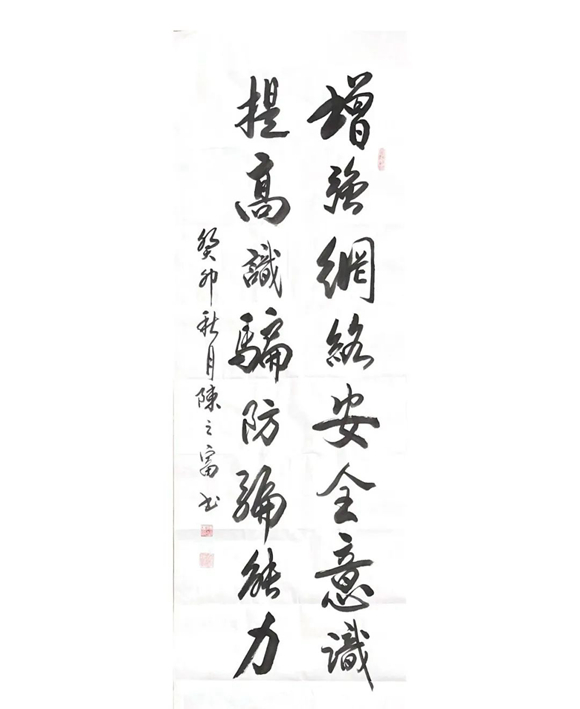 增強網絡安全意識
提高識騙防騙能力
癸卯秋月陳之富书